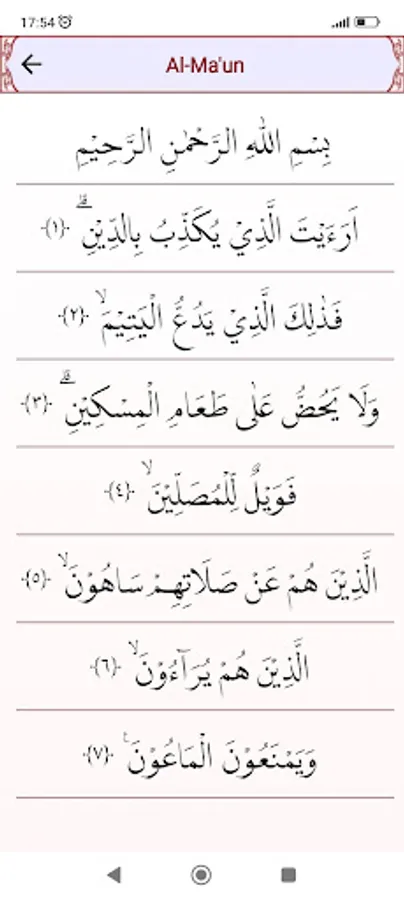 17:54
Al-Ma'un
بِسْمِ اللّٰهِ الرَّحْمٰنِ الرَّحِيْمِ
اَرَءَيْتَ الَّذِيْ يُكَذِّبُ بِالدِّيْنِۗ ‏-(١)-
فَذٰلِكَ الَّذِيْ يَدُعُّ الْيَتِيْمَۙ ‏-(٢)-
وَلَا يَحُضُّ عَلٰى طَعَامِ الْمِسْكِيْنِۗ ‏-(٣)-
فَوَيْلٌ لِّلْمُصَلِّيْنَۙ ‏-(٤)-
الَّذِيْنَ هُمْ عَنْ صَلَاتِهِمْ سَاهُوْنَۙ ‏-(٥)-
الَّذِيْنَ هُمْ يُرَاۤءُوْنَۙ ‏-(٦)-
وَيَمْنَعُوْنَ الْمَاعُوْنَ ‏-(٧)-